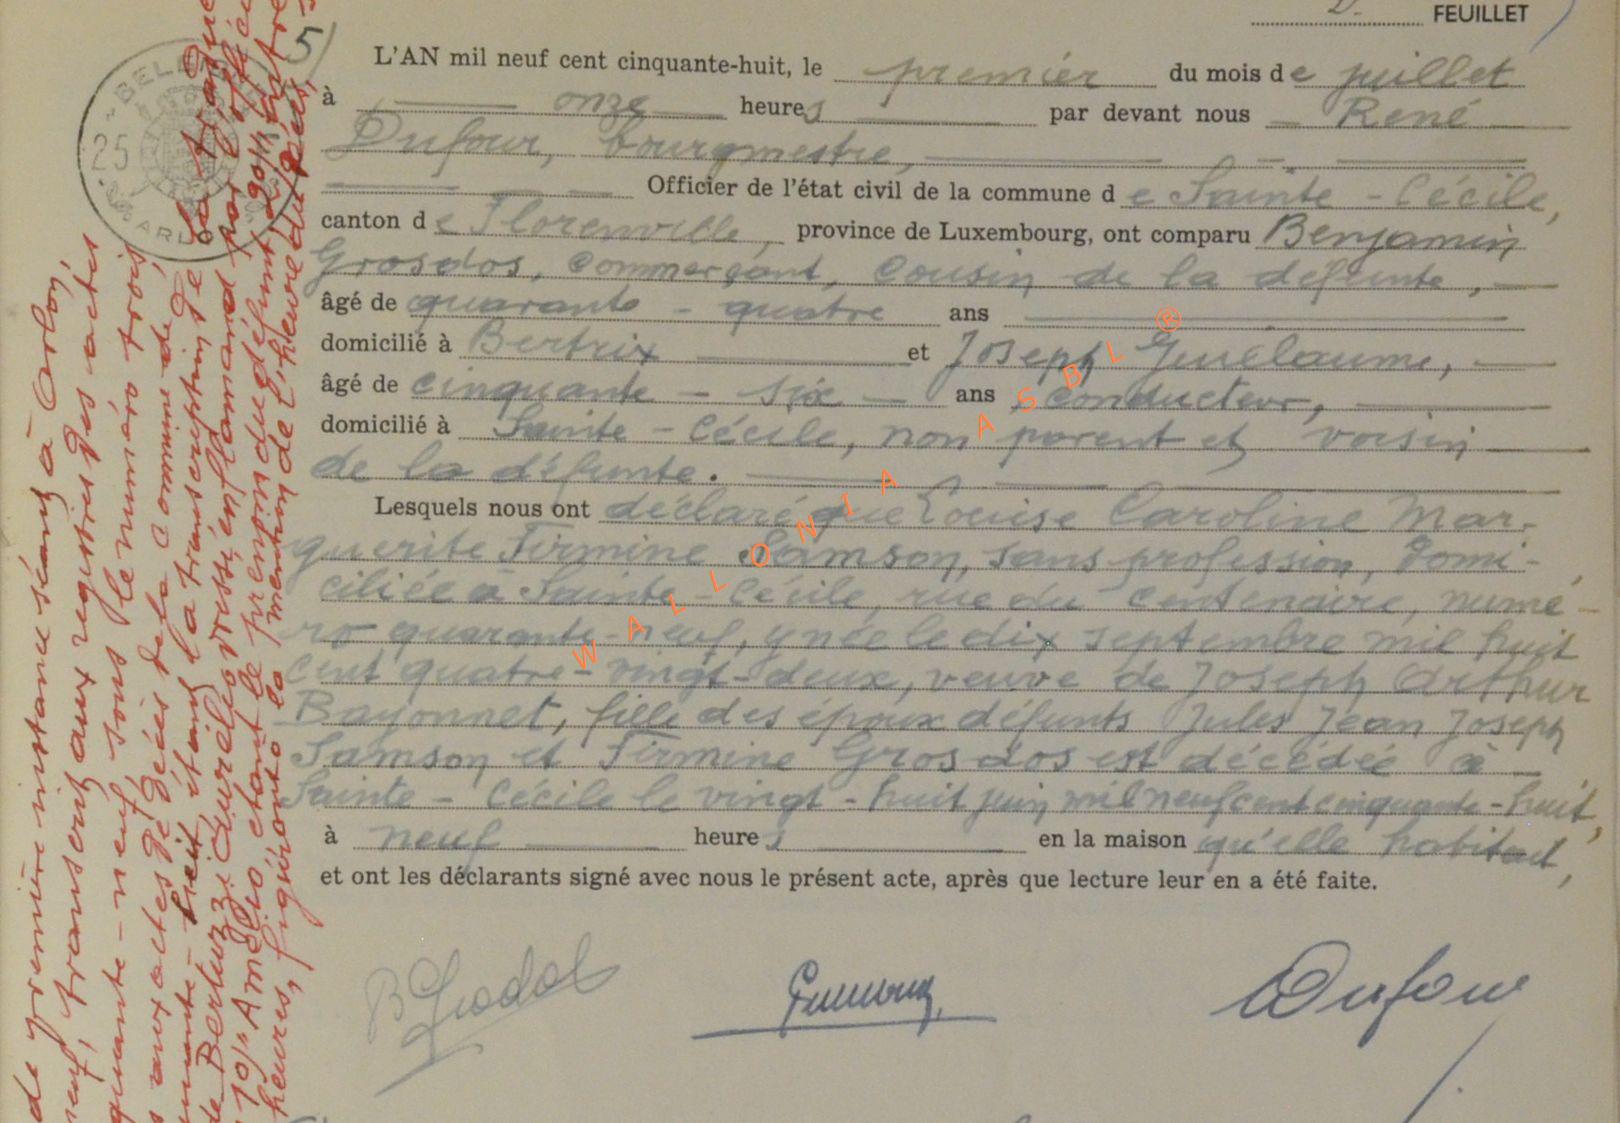 2e FEUILLET
5)
L'AN mil neuf cent cinquante-huit, le premier du mois de juillet
à onze heures par devant nous René
Dufour, bourgmestre,
Officier de l'état civil de la commune de Sainte-Cécile,
canton de Florenville, province de Luxembourg, ont comparu Benjamin
Grosdos, commerçant, cousin de la défunte,
âgé de quarante-quatre ans
domicilié à Bertrix et Joseph Guillaume,
âgé de cinquante-six ans, conducteur,
domicilié à Sainte-Cécile, non parent et voisin
de la défunte.
Lesquels nous ont déclaré que Louise Caroline Mar-
guerite Firmine Samson, sans profession, domi-
ciliée à Sainte-Cécile, rue du Centenaire, numé-
ro quarante-neuf, y née le dix septembre mil huit
cent quatre-vingt-deux, veuve de Joseph Arthur
Bayonnet, fille des époux défunts Jules Jean Joseph
Samson et Firmine Grosdos est décédée à
Sainte-Cécile le vingt-huit juin mil neuf cent cinquante-huit,
à neuf heures en la maison qu'elle habitait,
et ont les déclarants signé avec nous le présent acte, après que lecture leur en a été faite.
Dufour
WALLONIA ASBL ®
BELG
25
ARLO
de première instance séant à Arlon,
neuf, transcrit aux registres des actes
quante-neuf sous le numéro trois,
aux actes de décès de la commune de
huit étant la transcription de
de Bertuzzi Aurelio dressé en flamand par
"Amelio étant le prénom du défunt
heures, figureront la mention de l'heure du décès,